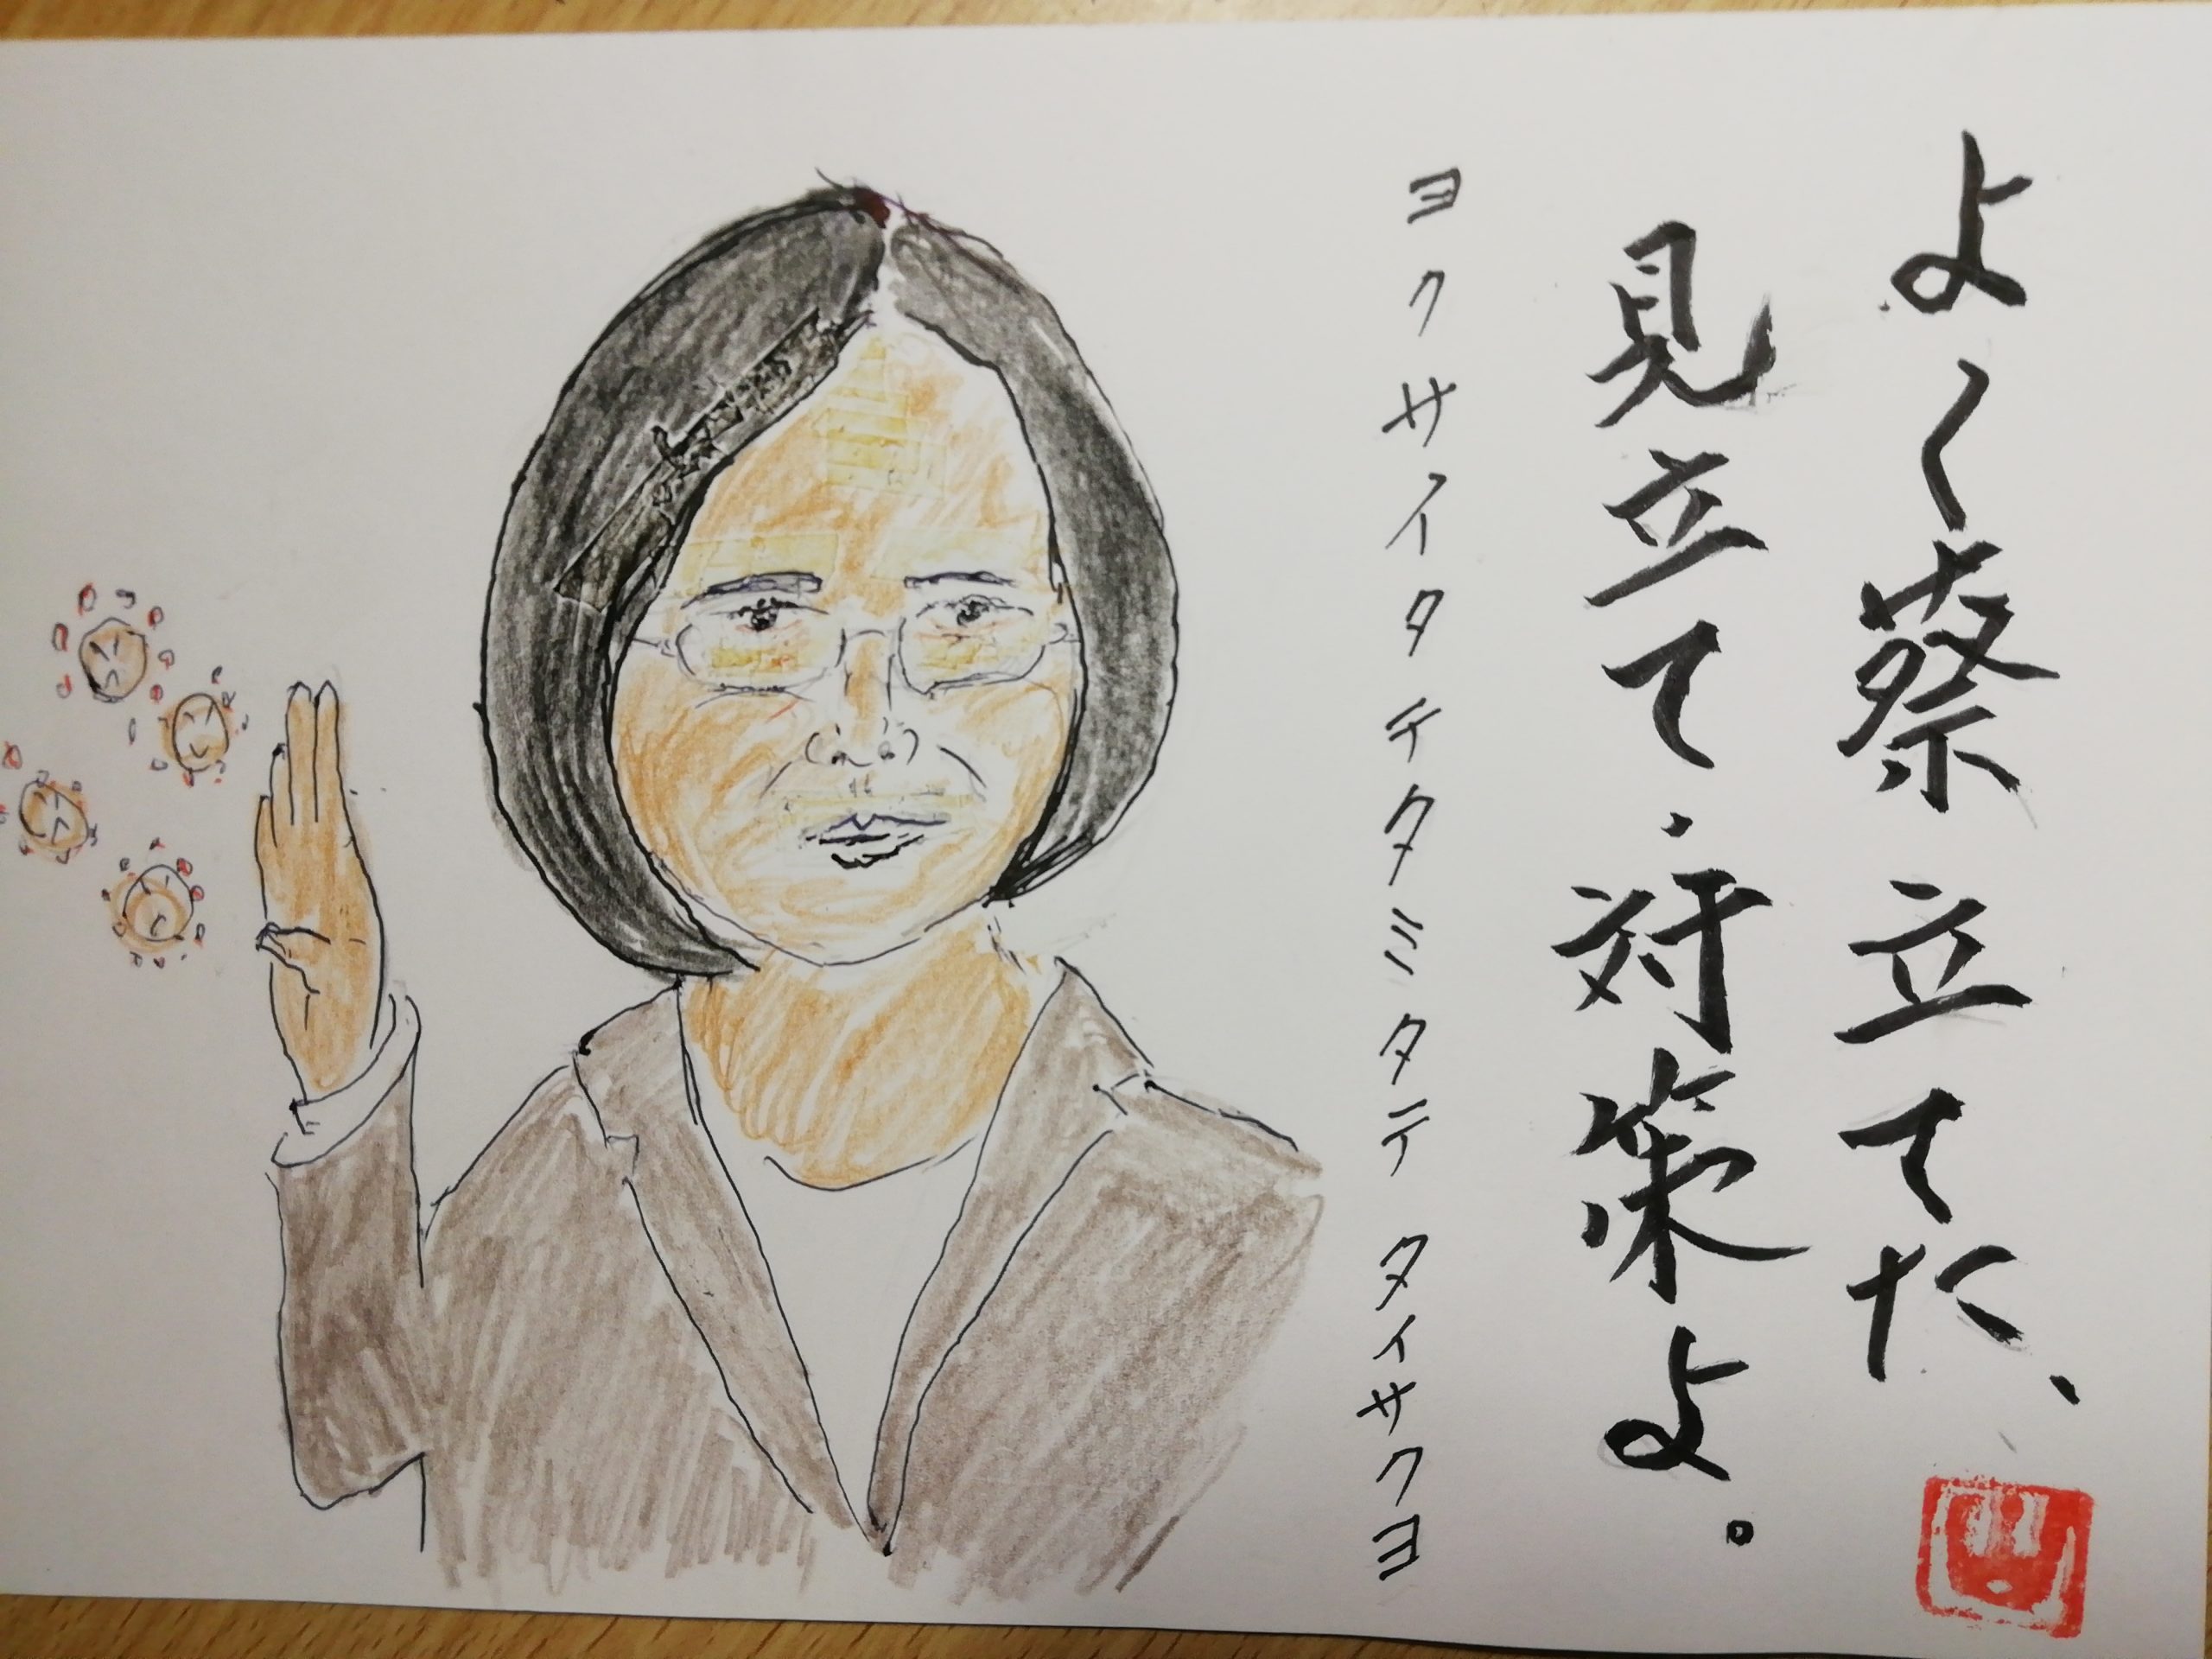 よく蔡立てた、
見立て・対策よ。
ヨクサイタテタミタテタイサクヨ